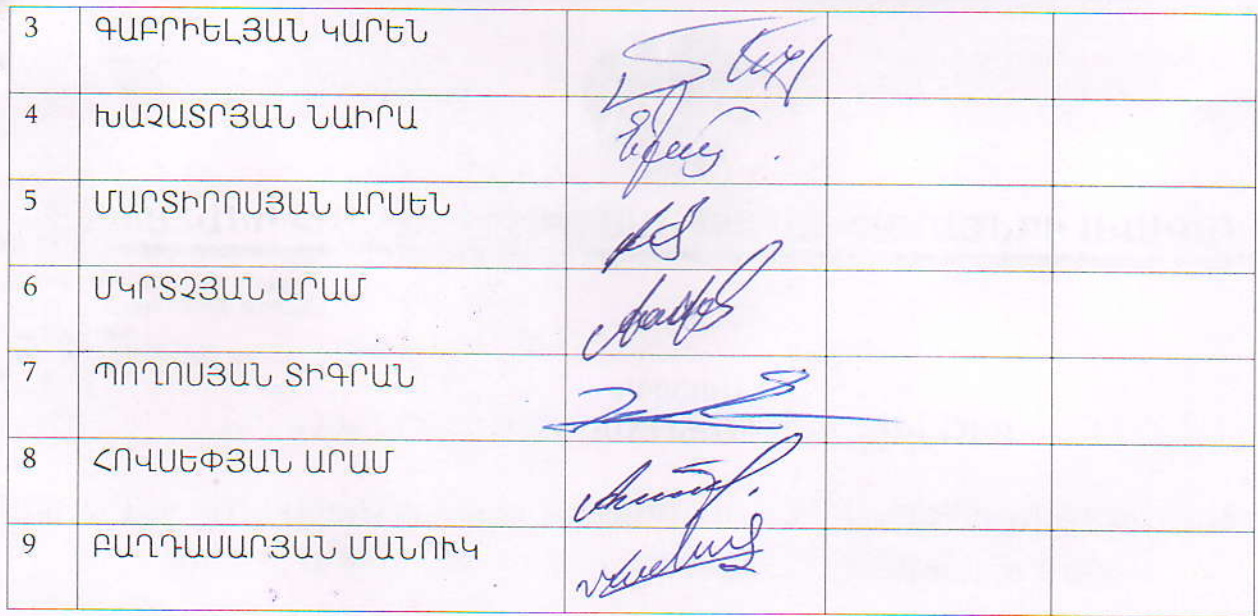 3 ԳԱԲՐԻԵԼՅԱՆ ԿԱՐԵՆ
4 ԽԱՉԱՏՐՅԱՆ ՆԱԻՐԱ
5 ՄԱՐՏԻՐՈՍՅԱՆ ԱՐՍԵՆ
6 ՄԿՐՏՉՅԱՆ ԱՐԱՄ
7 ՊՈՂՈՍՅԱՆ ՏԻԳՐԱՆ
8 ՀՈՎՍԵՓՅԱՆ ԱՐԱՄ
9 ԲԱՂԴԱՍԱՐՅԱՆ ՄԱՆՈՒԿ